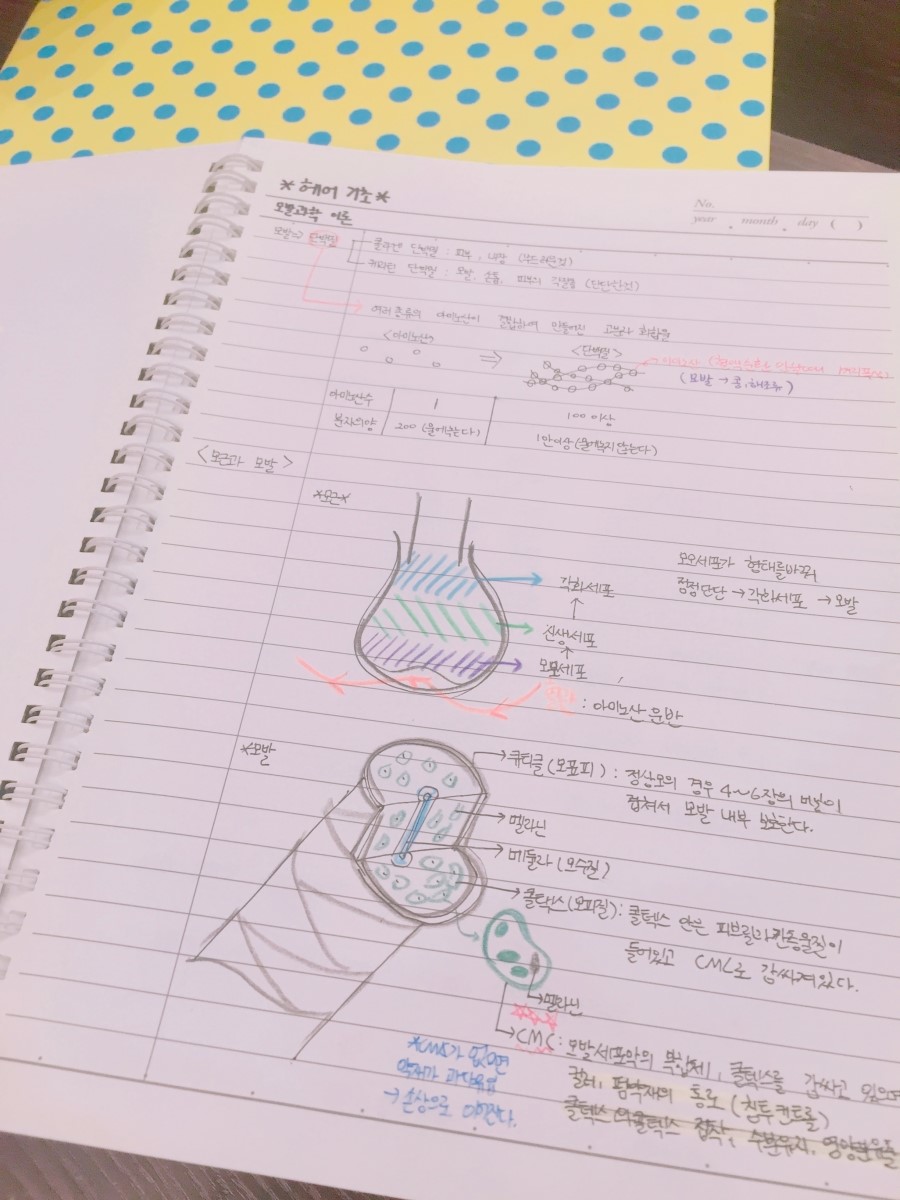 *헤어 기초*
No.
year . month . day ( )
모발과학 이론
모발=> 단백질
콜라겐 단백질 : 피부, 내장 (부드러운것)
케라틴 단백질 : 모발, 손톱, 피부의 각질층 (단단한것)
여러종류의 아미노산이 결합하여 만들어진 고분자 화합물
<아미노산> ⇒ <단백질>
아미노산
(모발 → 콩, 해조류)
아미노산수 1 100 이상
분자의양 200 (물에녹는다) 1만이상 (물에녹지않는다)
<모근과 모발>
*모근*
각화세포
↑
신생세포
↑
모모세포
모모세포가 형태를바꿔
점점단단 → 각화세포 → 모발
: 아미노산 운반
*모발
큐티클(모표피) : 정상모의 경우 4~6장의 비늘이
겹쳐서 모발 내부 보호한다.
멜라닌
메둘라 (모수질)
콜텍스(모피질) : 콜텍스 안은 피브릴과간충물질이
들어있고 CMC로 감싸져있다.
멜라닌
CMC : 모발세포막의 복합체, 콜텍스를 감싸고 있으며
컬러, 펌약재의 통로 (침투컨트롤)
콜텍스와콜텍스 접착, 수분유지, 영양분유출
*CMC가 없으면
약재가 과다유입
→ 손상으로 이어진다.